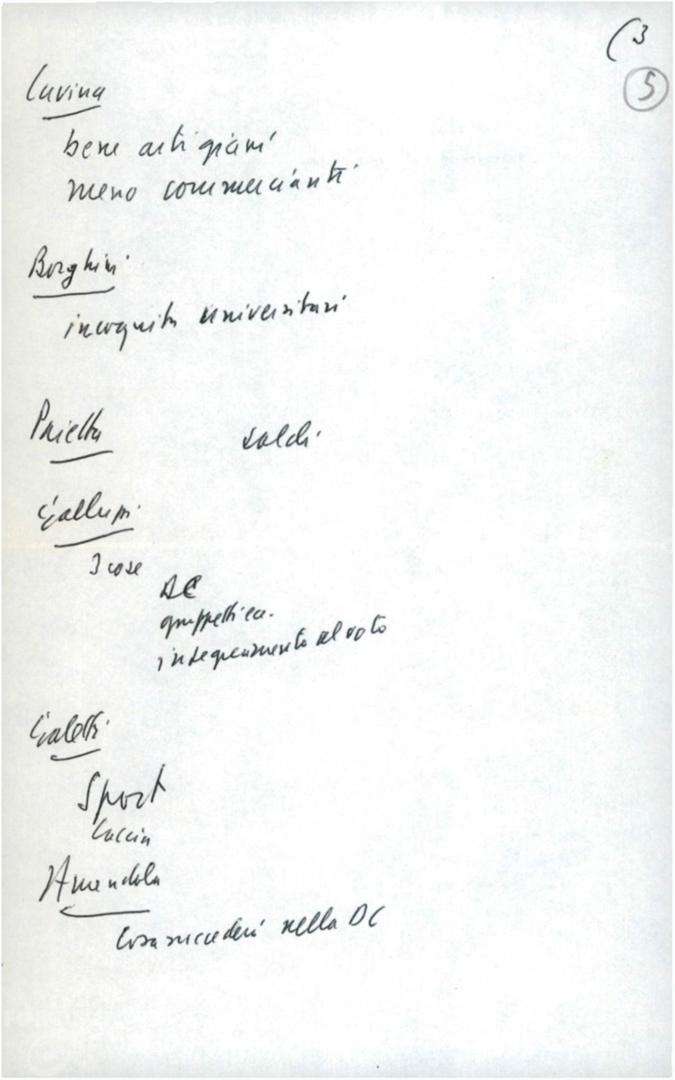 (3
5
Cuvina
bene artigiani
meno commercianti
Borghini
incognita universitari
Pajetta saldi
Galluppi
3 cose
DC
gruppetti ecc.
inseguimento al voto
Galetti
Sport
Caccia
Amendola
Cosa succederà nella DC